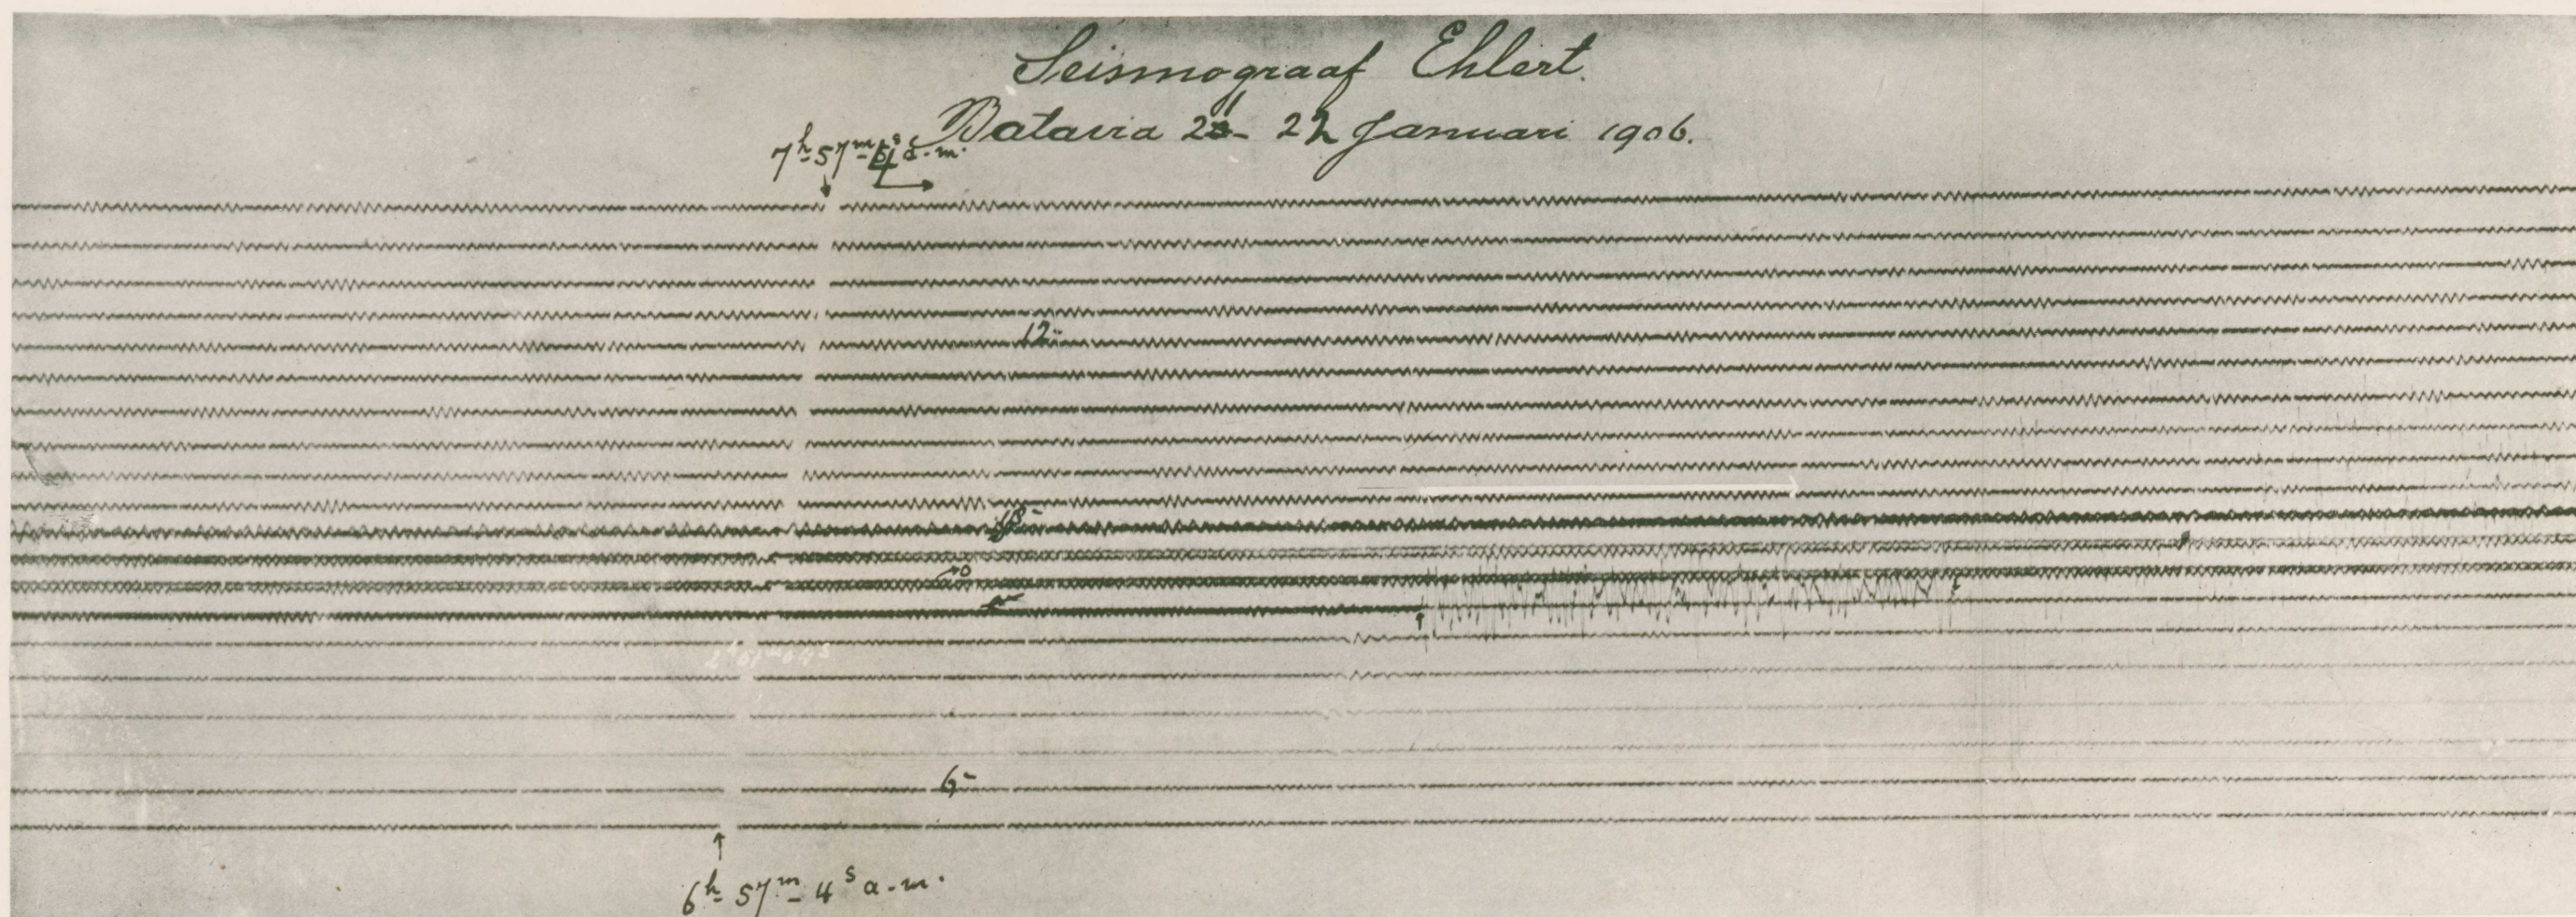 Seismograaf Ehlert.
Batavia 21- 22 Januari 1906.
7h 57m a.m.
12
18
0
6
6h 57m 4s a.m.